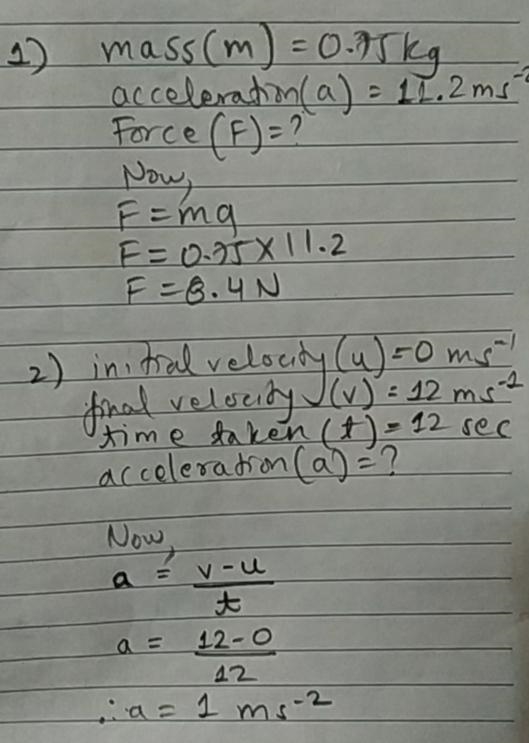 1) mass(m) = 0.75kg
acceleration(a) = 11.2 ms⁻²
Force (F)=?
Now,
F = mg
F = 0.75 × 11.2
F = 8.4 N
2) initial velocity (u) = 0 ms⁻¹
final velocity (v) = 12 ms⁻¹
time taken (t) = 12 sec
acceleration(a) = ?
Now,
a = v-u
t
a = 12-0
12
∴ a = 1 ms⁻²